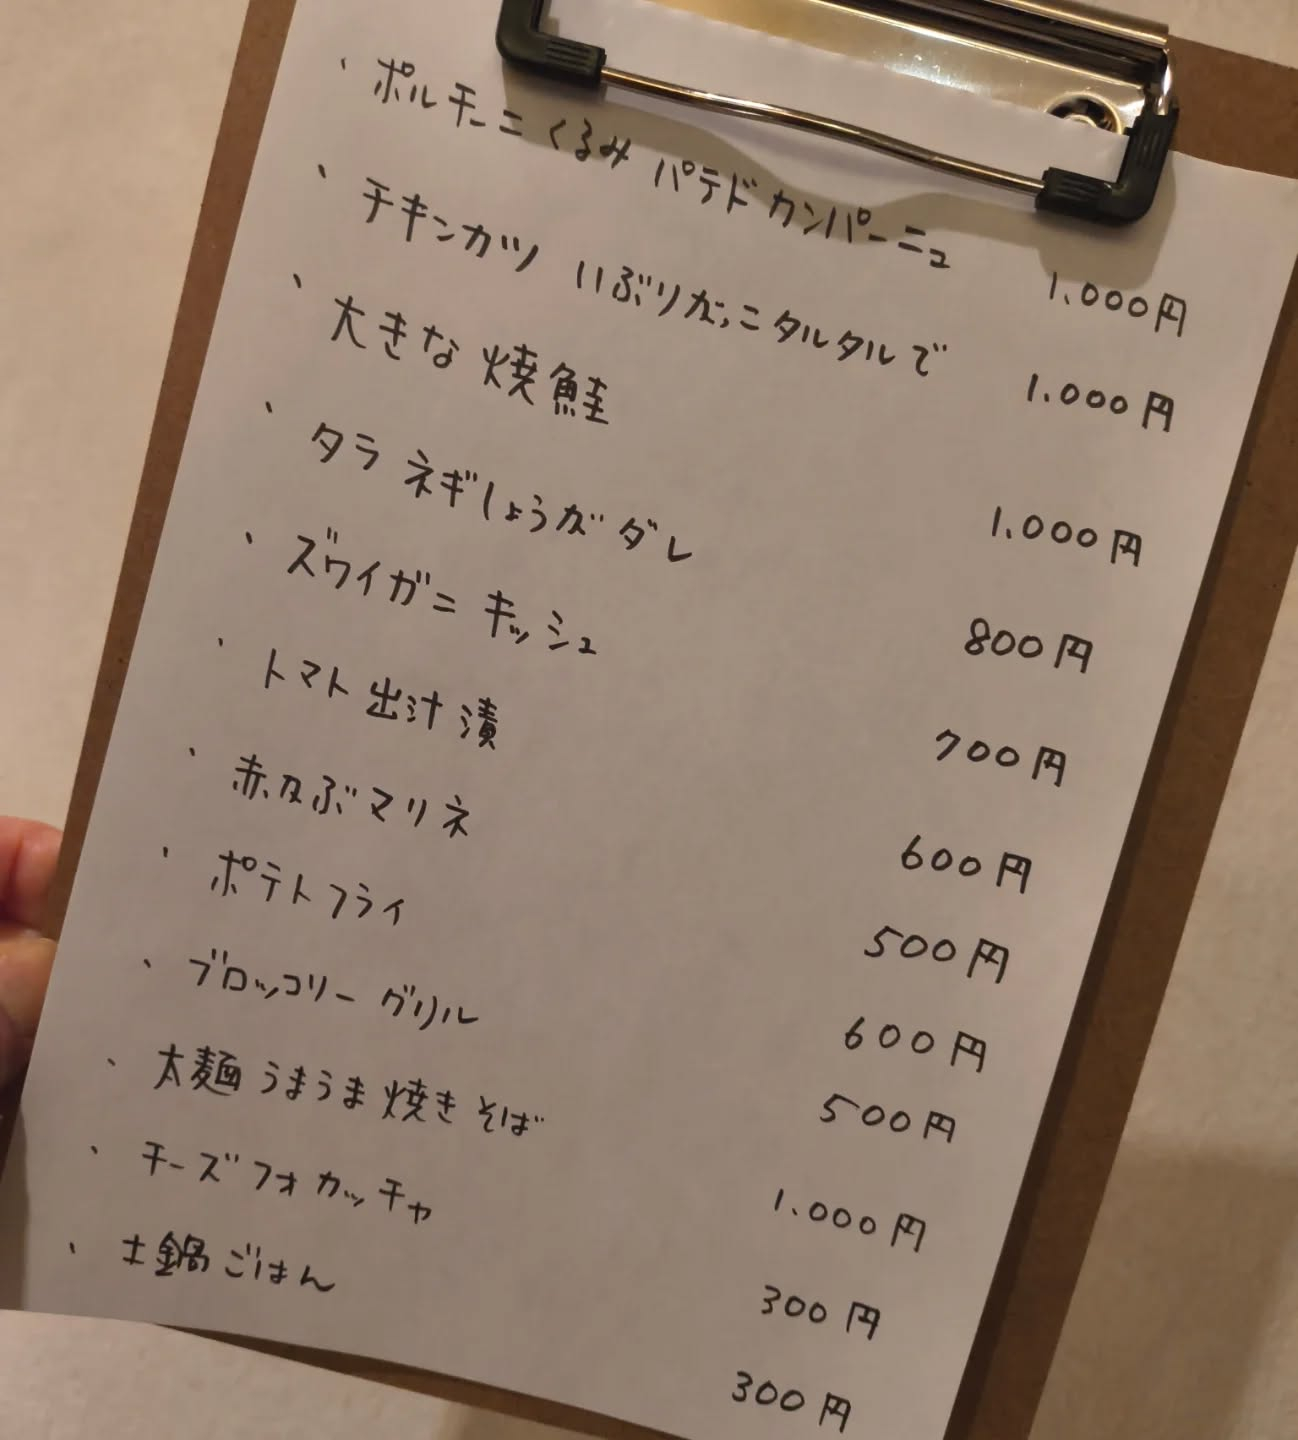 、ポルチーニ くるみ パテド カンパーニュ 1.000円
、チキンカツ いぶりがっこタルタルで 1.000円
、大きな 焼鮭 1.000円
、タラ ネギしょうがダレ 800円
、ズワイガニ キッシュ 700円
、トマト出汁漬 600円
、赤かぶマリネ 500円
、ポテトフライ 600円
、ブロッコリー グリル 500円
、太麺 うまうま焼きそば 1.000円
、チーズフォカッチャ 300円
、土鍋ごはん 300円